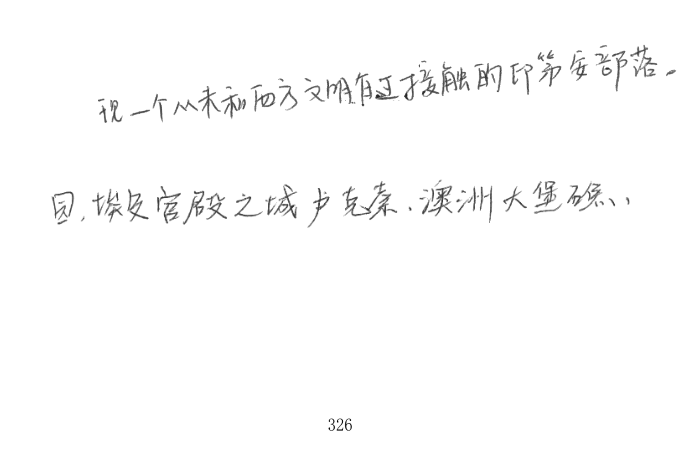 现一个从未和西方文明有过接触的印第安部落。
园、埃及宫殿之城卢克索、澳洲大堡礁、
326